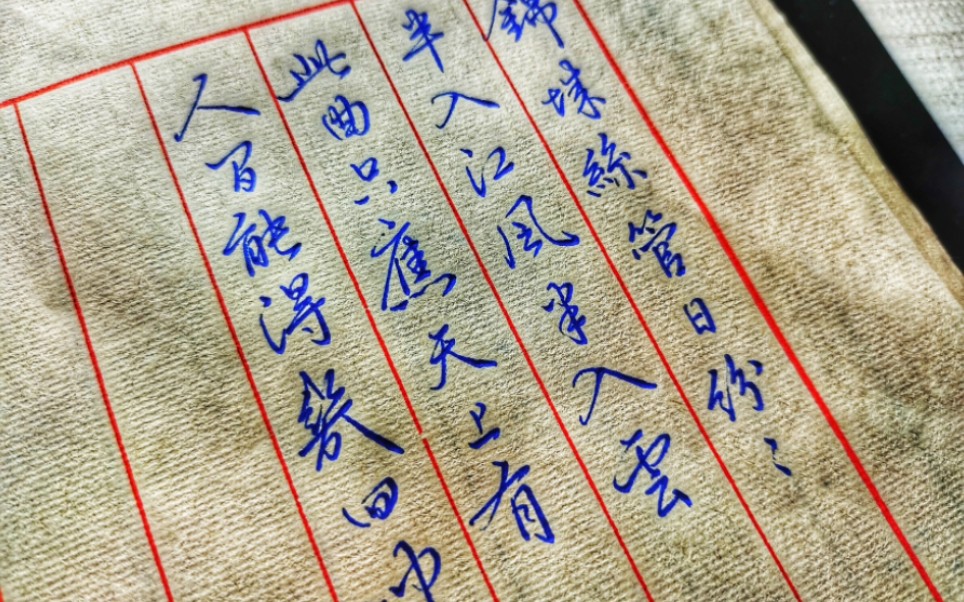 錦城絲管日紛〻
半入江風半入雲
此曲只應天上有
人間能得幾回